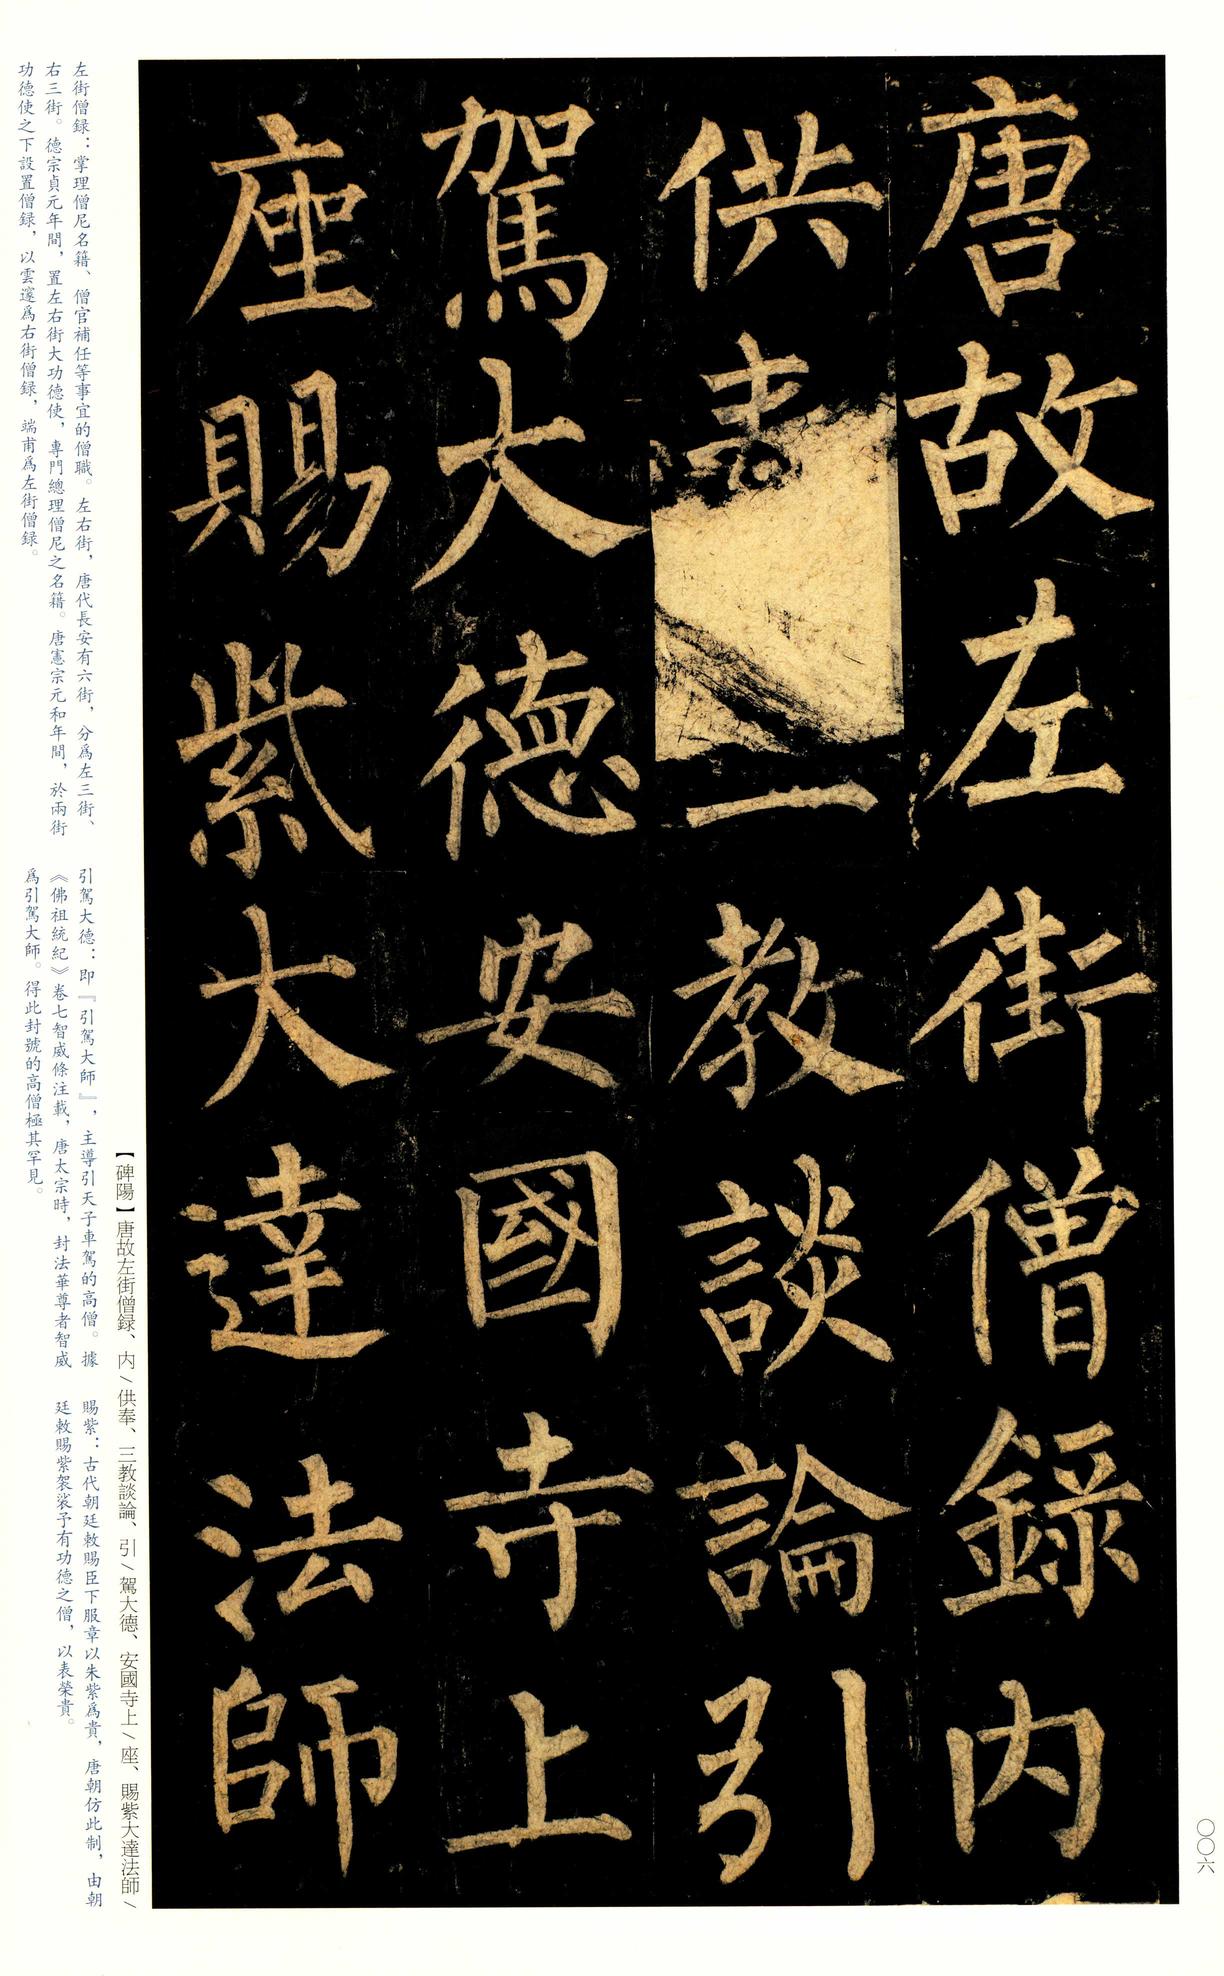 唐故左街僧録内
供一教談論引
駕大德安國寺上
座賜紫大達法師
【碑陽】唐故左街僧録、内/供奉、三教談論、引/駕大德、安國寺上/座、賜紫大達法師/
左街僧録：掌理僧尼名籍、僧官補任等事宜的僧職。左右街，唐代長安有六街，分爲左三街、
右三街。德宗貞元年間，置左右街大功德使，專門總理僧尼之名籍。唐憲宗元和年間，於兩街
功德使之下設置僧録，以雲邃爲右街僧録，端甫爲左街僧録。
引駕大德：即『引駕大師』，主導引天子車駕的高僧。據
《佛祖統紀》卷七智威條注載，唐太宗時，封法華尊者智威
爲引駕大師。得此封號的高僧極其罕見。
賜紫：古代朝廷敕賜臣下服章以朱紫爲貴，唐朝仿此制，由朝
廷敕賜紫袈裟予有功德之僧，以表榮貴。
〇〇六